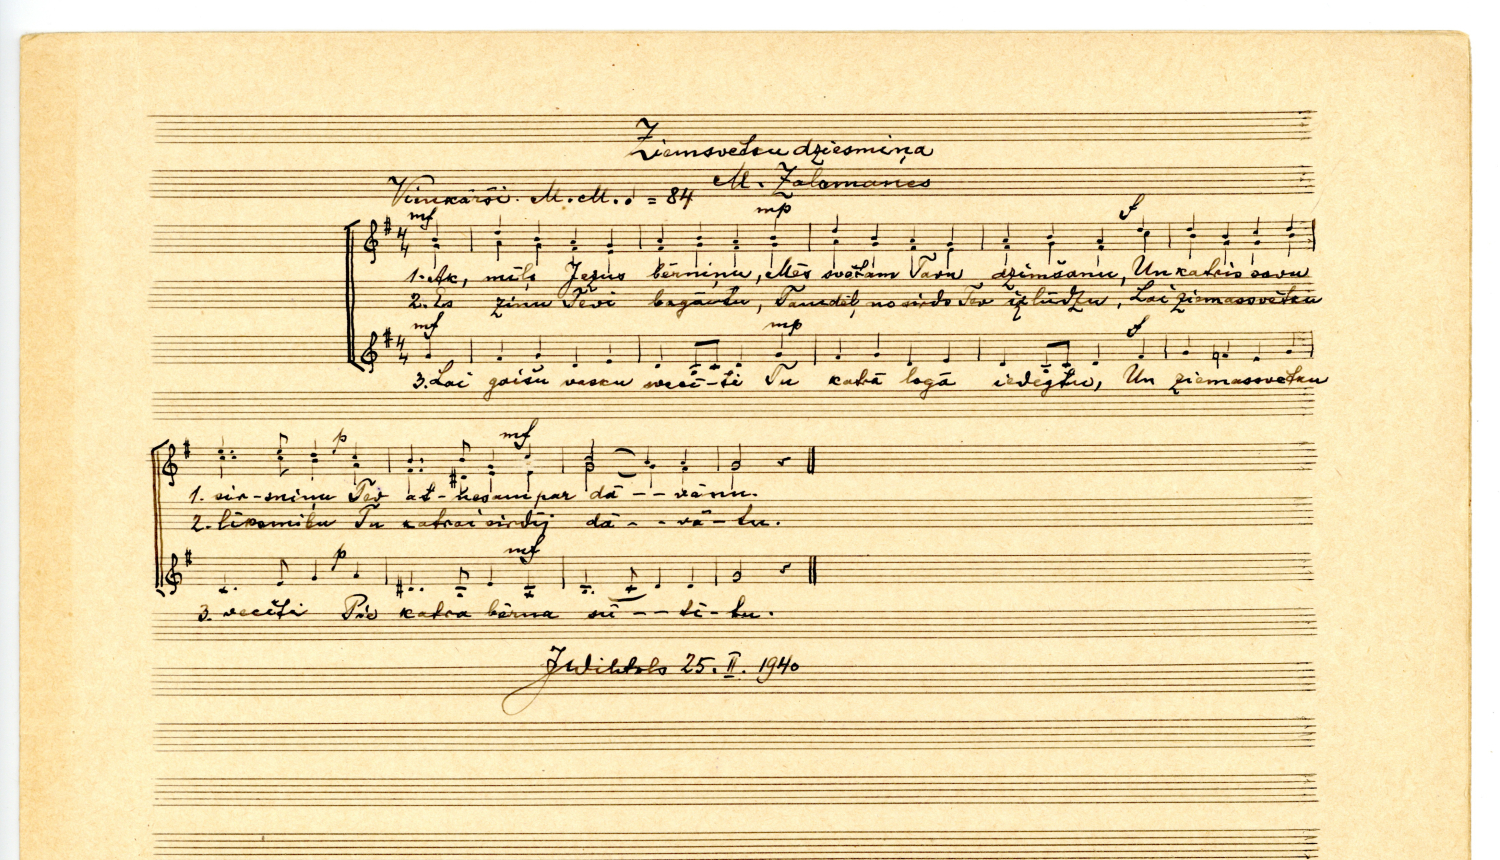 Ziemsvetku dziesmiņa
M. Zalamanes
Vienkārši. M.M. ♩ = 84
mf mp f
1. Ak, mīļo Jezus bērniņu, Mēs svētam Tavu dzimšanu, Un katris savu
2. Es zinu Tēvi bagātu, Tamdēļ no sirds Tev izlūdzu, Lai ziemassvētku
mf mp f
3. Lai gaišu vasku svecī-ti Tu katrā logā iedegtu, Un ziemassvetku
p mf
1. sir-sniņu Tev at-nesam par dā - - vānu.
2. līksmību Tu katrai sirdij dā - - vā - tu.
p mf
3. vecīti Pie katra bērna sū - - tī - tu.
JWihtols 25. II. 1940